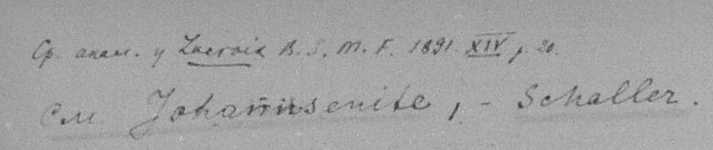 Ср. анал. у Lacroix B. S. M. F. 1891. XIV p. 20.
См. Johannsenite, - Schaller.